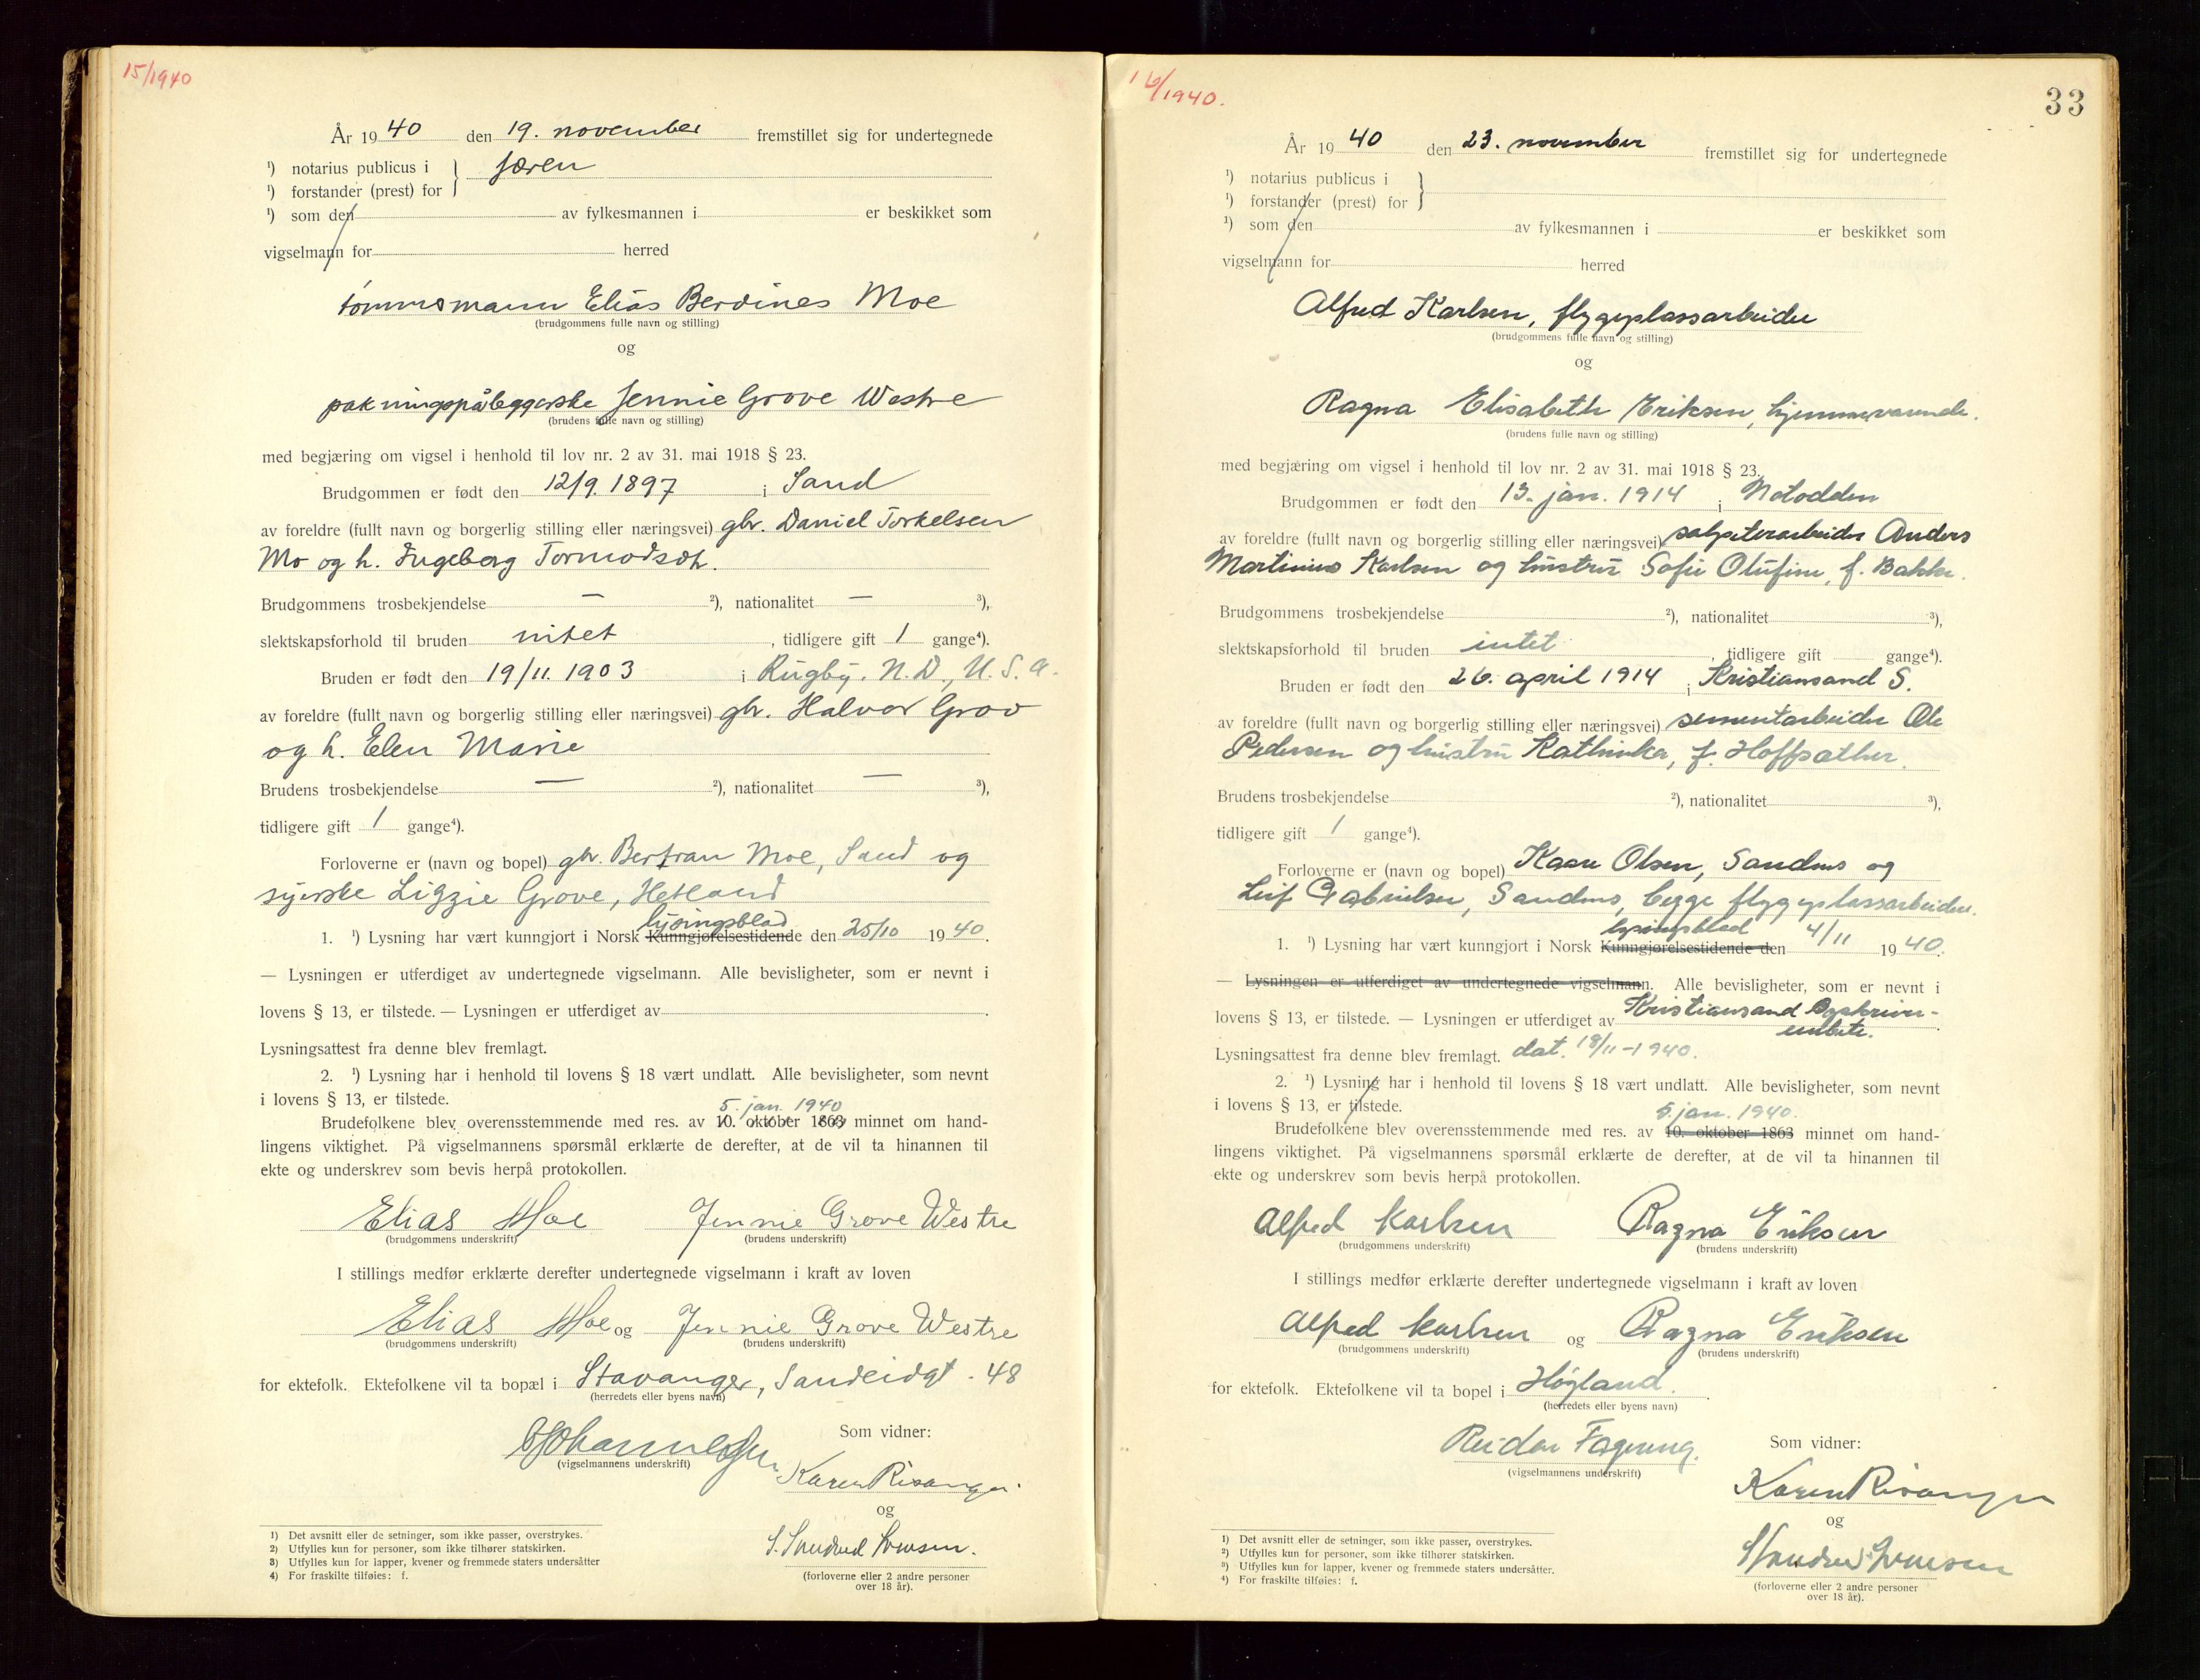 15/1940
År 1940 den 19. november fremstillet sig for undertegnede
¹) notarius publicus i } Jæren
¹) forstander (prest) for
¹) som den av fylkesmannen i er beskikket som
vigselmann for herred
tømmermann Elias Berdines Moe
(brudgommens fulle navn og stilling)
og
pakningspåleggerske Jennie Grove Westre
(brudens fulle navn og stilling)
med begjæring om vigsel i henhold til lov nr. 2 av 31. mai 1918 § 23.
Brudgommen er født den 12/9. 1897 i Sand
av foreldre (fullt navn og borgerlig stilling eller næringsvei) gbr. Daniel Torkelsen
Mo og h. Ingeborg Tormodsdt.
Brudgommens trosbekjendelse — ²), nationalitet — ³),
slektskapsforhold til bruden intet, tidligere gift 1 gange⁴).
Bruden er født den 19/11. 1903 i Rugby. N.D., U.S.A.
av foreldre (fullt navn og borgerlig stilling eller næringsvei) gbr. Halvor Grov
og h. Elen Marie
Brudens trosbekjendelse — ²), nationalitet — ³),
tidligere gift 1 gange⁴).
Forloverne er (navn og bopel) gbr. Bertran Moe, Sand og
syerske Lizzie Grove, Hetland
lysingsblad
1. ¹) Lysning har vært kunngjort i Norsk Kunngjørelsestidende den 25/10 1940.
— Lysningen er utferdiget av undertegnede vigselmann. Alle bevisligheter, som er nevnt i
lovens § 13, er tilstede. — Lysningen er utferdiget av
Lysningsattest fra denne blev fremlagt.
2. ¹) Lysning har i henhold til lovens § 18 vært undlatt. Alle bevisligheter, som nevnt
i lovens § 13, er tilstede.
5. jan. 1940
Brudefolkene blev overensstemmende med res. av 10. oktober 1863 minnet om hand-
lingens viktighet. På vigselmannens spørsmål erklærte de derefter, at de vil ta hinannen til
ekte og underskrev som bevis herpå protokollen.
Elias Moe Jennie Grove Westre
(brudgommens underskrift) (brudens underskrift)
I stillings medfør erklærte derefter undertegnede vigselmann i kraft av loven
Elias Moe og Jennie Grove Westre
(brudgommens underskrift) (brudens underskrift)
for ektefolk. Ektefolkene vil ta bopæl i Stavanger, Sandeidgt. 48
(herredets eller byens navn)
Som vidner:
(vigselmannens underskrift)
Karen Risanger
og
S. Sandved Svensen.
(forloverne eller 2 andre personer
over 18 år).
1) Det avsnitt eller de setninger, som ikke passer, overstrykes.
2) Utfylles kun for personer, som ikke tilhører statskirken.
3) Utfylles kun for lapper, kvener og fremmede staters undersåtter
4) For fraskilte tilføies: f.
16/1940.
33
År 1940 den 23. november fremstillet sig for undertegnede
¹) notarius publicus i }
¹) forstander (prest) for
¹) som den av fylkesmannen i er beskikket som
vigselmann for herred
Alfred Karlsen, flygeplassarbeider
(brudgommens fulle navn og stilling)
og
Ragna Elisabeth Eriksen, hjemmeværende.
(brudens fulle navn og stilling)
med begjæring om vigsel i henhold til lov nr. 2 av 31. mai 1918 § 23.
Brudgommen er født den 13. jan. 1914 i Notodden
av foreldre (fullt navn og borgerlig stilling eller næringsvei) salpeterarbeider Anders
Martinius Karlsen og hustru Sofie Olufine, f. Bakke.
Brudgommens trosbekjendelse ²), nationalitet ³),
slektskapsforhold til bruden intet, tidligere gift gange⁴).
Bruden er født den 26. april 1914 i Kristiansand S.
av foreldre (fullt navn og borgerlig stilling eller næringsvei) sementarbeider Ole
Pedersen og hustru Kathinka, f. Hoffsæther.
Brudens trosbekjendelse ²), nationalitet ³),
tidligere gift 1 gange⁴).
Forloverne er (navn og bopel) Kaare Olsen, Sandnes og
Leif Gabrielsen, Sandnes, begge flygeplassarbeidere.
lysingsblad
1. ¹) Lysning har vært kunngjort i Norsk Kunngjørelsestidende den 4/11 1940.
— Lysningen er utferdiget av undertegnede vigselmann. Alle bevisligheter, som er nevnt i
lovens § 13, er tilstede. — Lysningen er utferdiget av Kristiansand Byskriver-
embete.
Lysningsattest fra denne blev fremlagt. dat. 18/11-1940.
2. ¹) Lysning har i henhold til lovens § 18 vært undlatt. Alle bevisligheter, som nevnt
i lovens § 13, er tilstede.
5. jan. 1940.
Brudefolkene blev overensstemmende med res. av 10. oktober 1863 minnet om hand-
lingens viktighet. På vigselmannens spørsmål erklærte de derefter, at de vil ta hinannen til
ekte og underskrev som bevis herpå protokollen.
Alfred Karlsen Ragna Eriksen
(brudgommens underskrift) (brudens underskrift)
I stillings medfør erklærte derefter undertegnede vigselmann i kraft av loven
Alfred Karlsen og Ragna Eriksen
(brudgommens underskrift) (brudens underskrift)
for ektefolk. Ektefolkene vil ta bopel i Høgland.
(herredets eller byens navn)
Reidar Fagernæs. Som vidner:
(vigselmannens underskrift)
Karen Risanger
og
S Sandved Svensen
(forloverne eller 2 andre personer
over 18 år).
¹) Det avsnitt eller de setninger, som ikke passer, overstrykes.
²) Utfylles kun for personer, som ikke tilhører statskirken.
³) Utfylles kun for lapper, kvener og fremmede staters undersåtter.
⁴) For fraskilte tilføies: f.